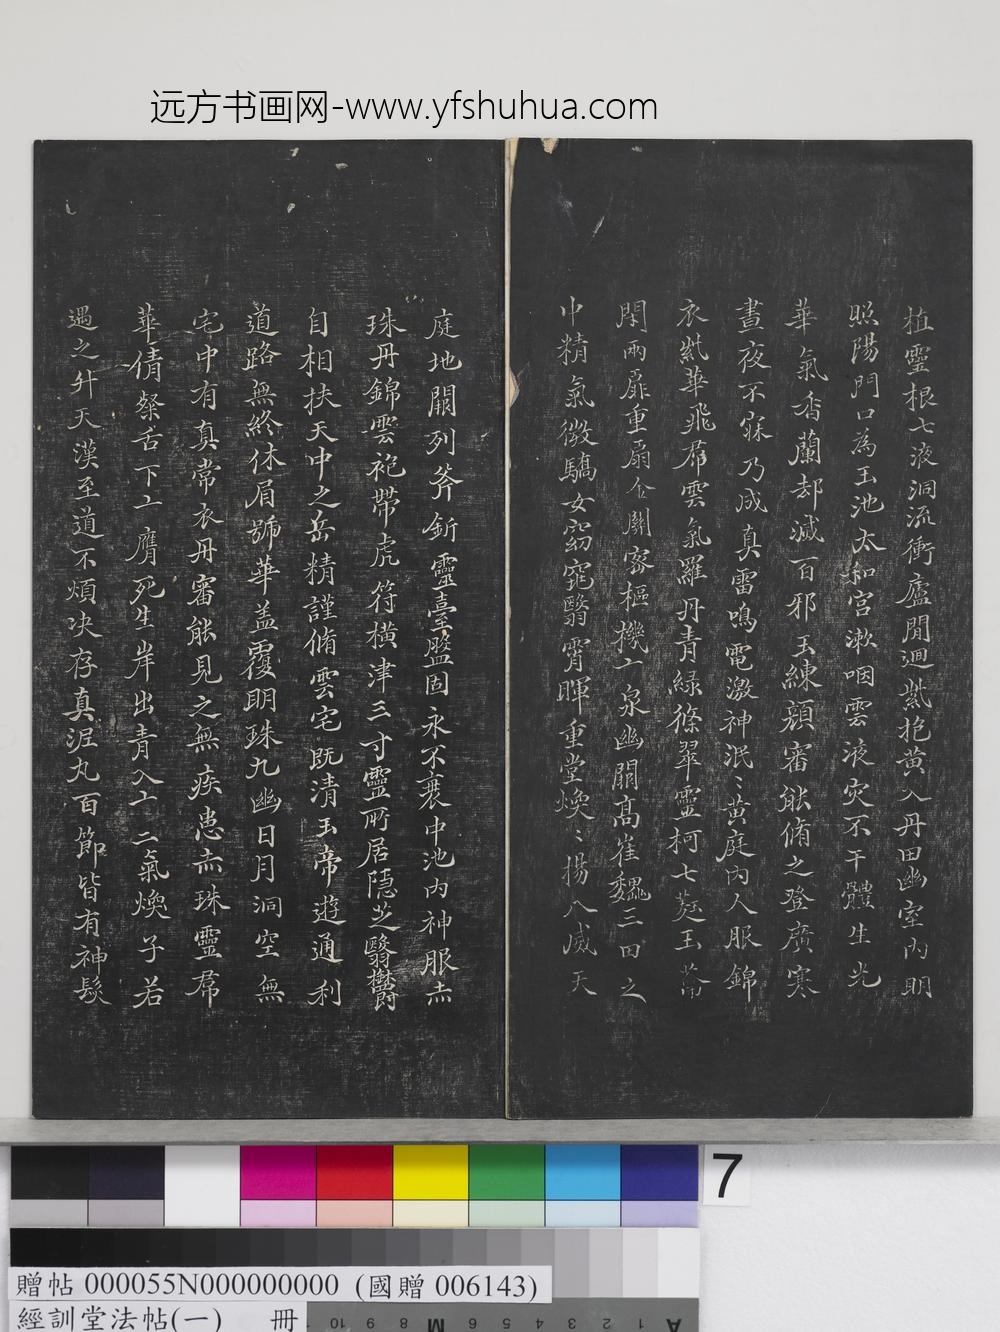 远方书画网-www.yfshuhua.com
植靈根七液洞流衝廬閒迴紫抱黃入丹田幽室內明
照陽門口為玉池太和宮漱咽雲液灾不干體生光
華氣香蘭却滅百邪玉練顏審能脩之登廣寒
晝夜不寐乃成真雷鳴電激神泯〻黃庭內人服錦
衣紫華飛帬雲氣羅丹青綠絛翠靈柯七蕤玉籥
閇兩扉重扇金關密樞機亠泉幽關髙崔巍三田之
中精氣微驕女窈窕翳霄暉重堂煥〻揚八威天
庭地關列斧釿靈臺盤固永不衰中池內神服赤
珠丹錦雲袍帶虎符橫津三寸靈所居隱芝翳鬱
自相扶天中之岳精謹脩雲宅既清玉帝遊通利
道路無終休眉號華盖覆明珠九幽日月洞空無
宅中有真常衣丹審能見之無疾患赤珠靈帬
華倩粲舌下亠膺死生岸出青入亠二氣煥子若
遇之升天漢至道不煩决存真泥丸百節皆有神髮
7
贈帖 000055N000000000 (國贈 006143)
經訓堂法帖(一) 冊
10 9 8 M 6 5 4 3 2 1 A